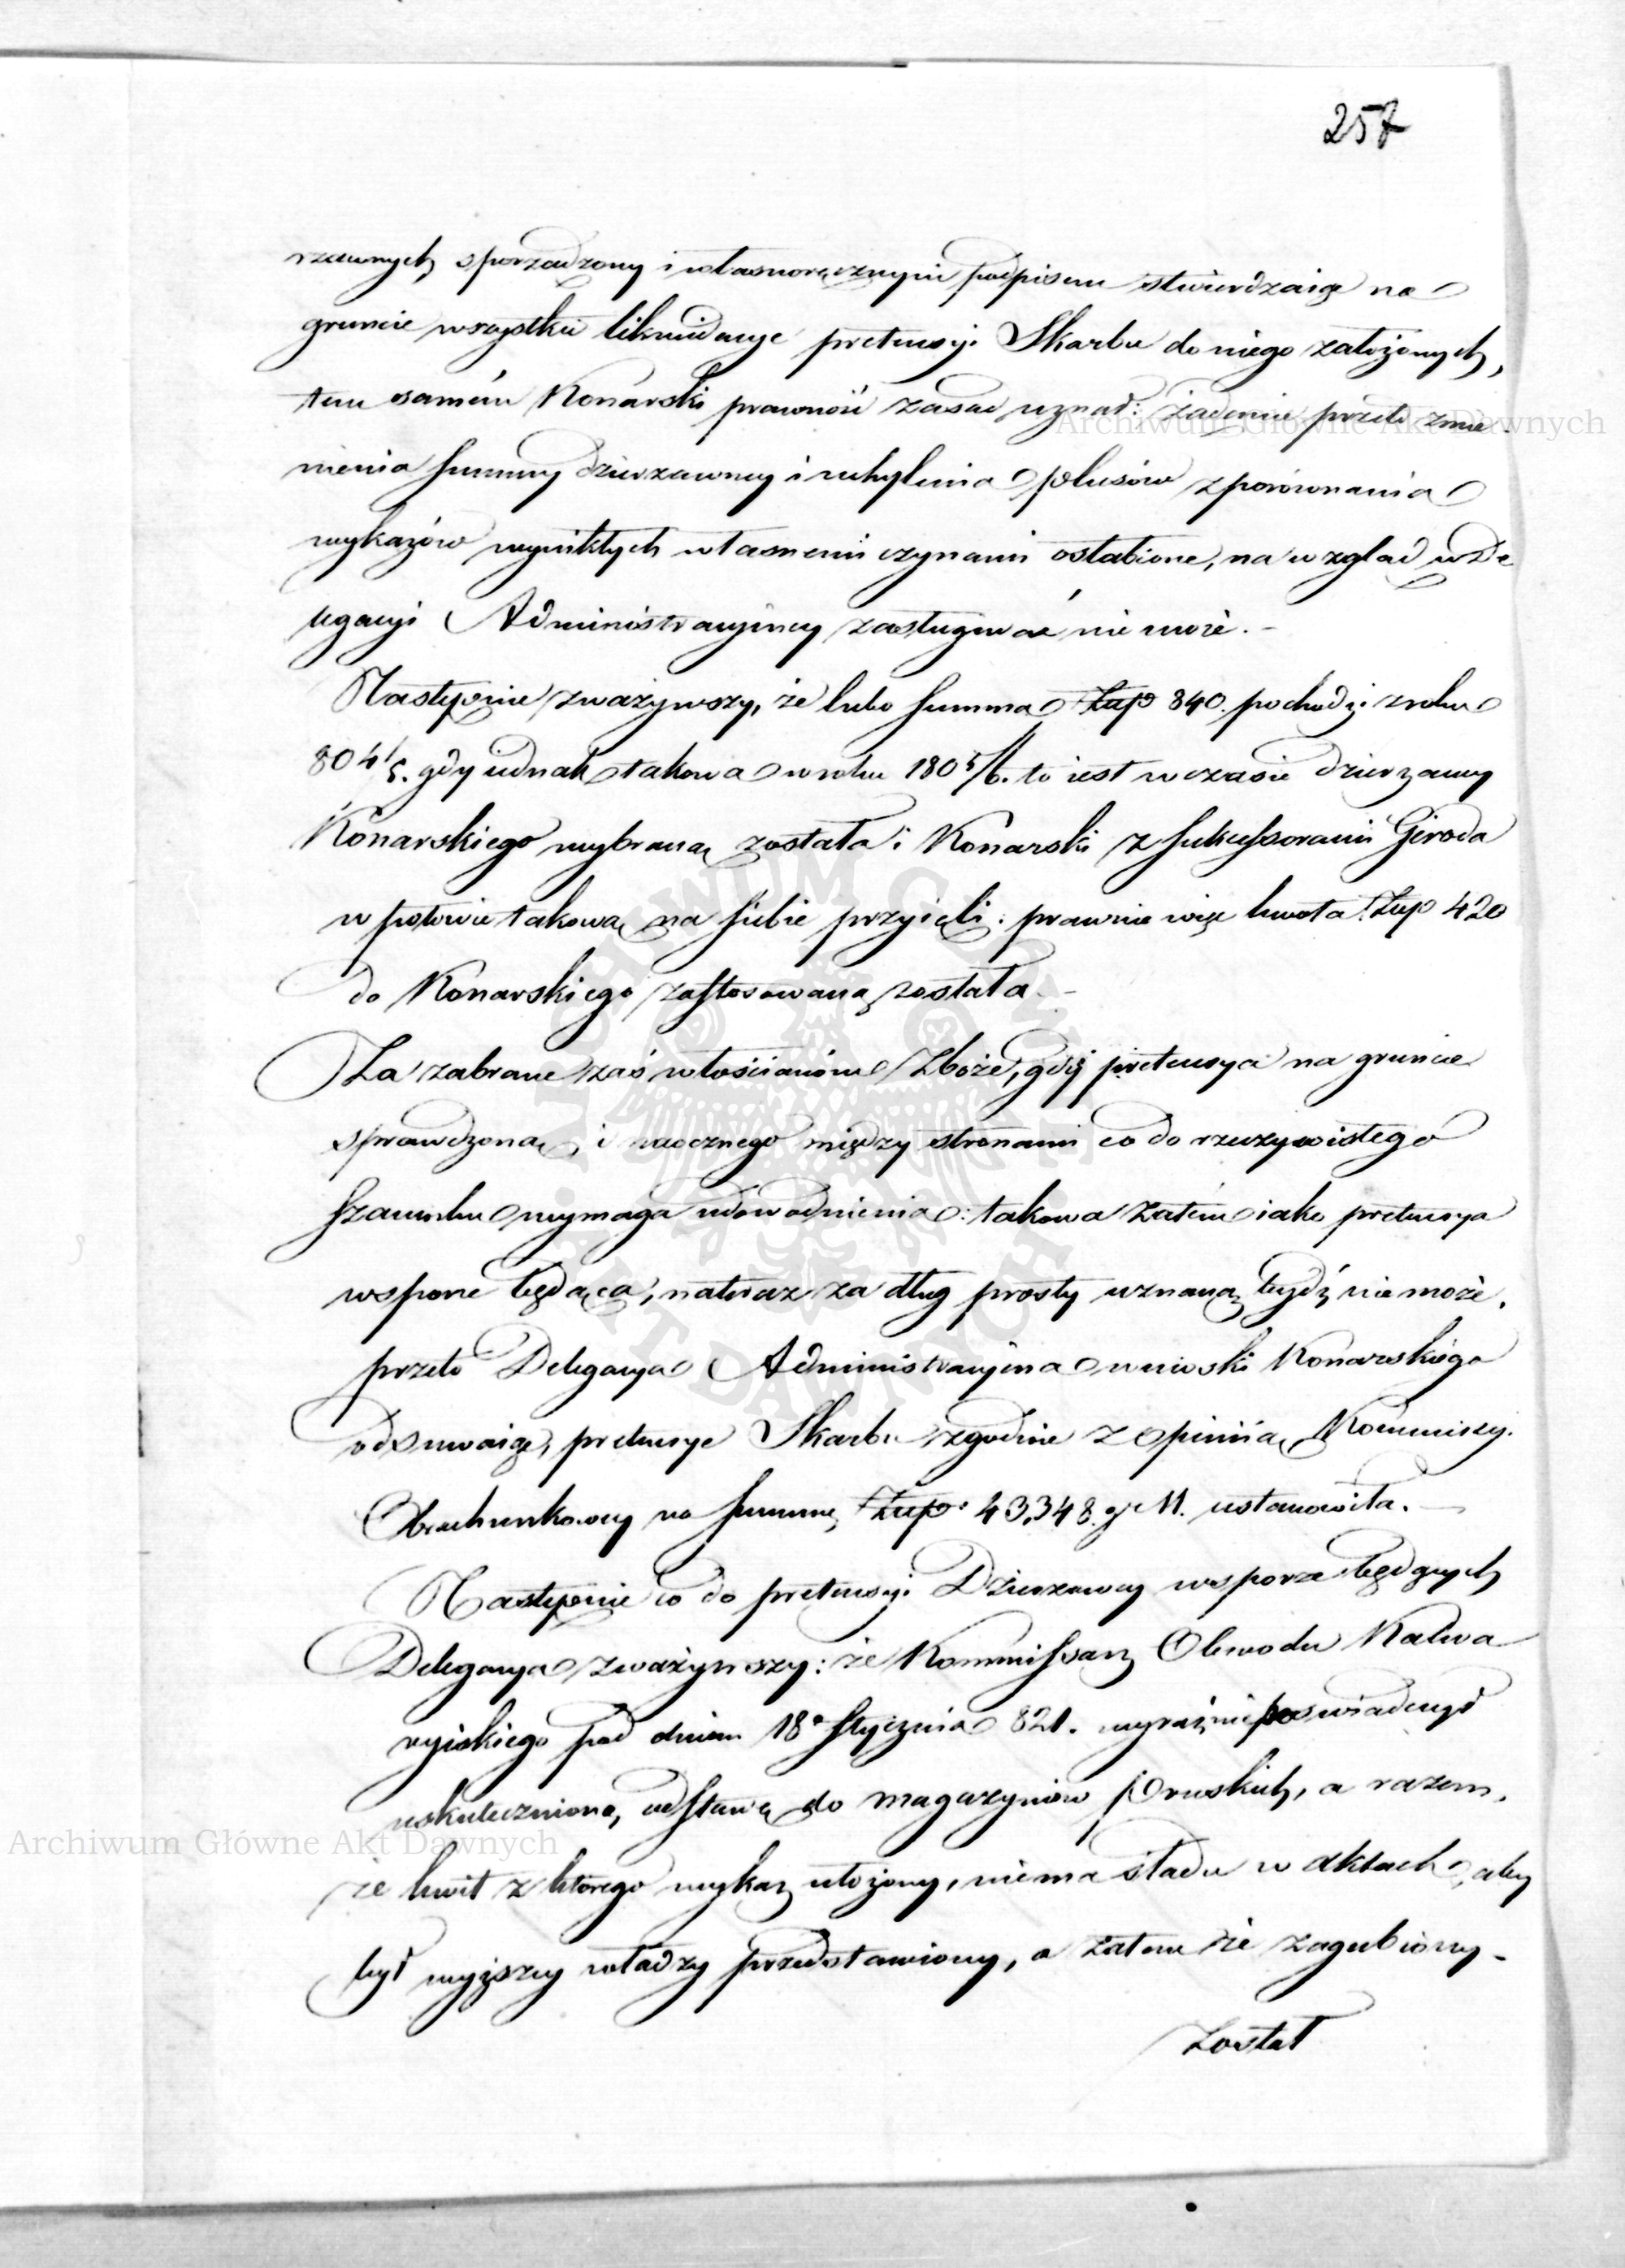 257
rzawnych sporządzony i własnoręcznym podpisem stwierdzaiąc na
gruncie wszystkie likwidacye pretensyi Skarbu do niego założonych,
tem samem Konarski prawność zasad uznał: żądanie przeto zmie-
nienia summy dzierżawney i uchylenia plusów z porównania
wykazów wynikłych własnemi czynami osłabione, na wzgląd w De
legacyi Administracyiney zasługiwać nie może. –
Następnie zważywszy, że lubo summa Złp 840. pochodzi z roku
804/5. gdy iednak takowa w roku 1805/6. to iest w czasie dzierżawy
Konarskiego wybraną została i Konarski z sukcessorami Giroda
w połowie takową na siebie przyięli: prawnie więc kwota Złp 420
do Konarskiego zastosowaną została –
Za zabrane zaś włościanom Zboże, gdy pretensya na gruncie
sprawdzona, i naocznego między stronami co do rzeczywistego
szacunku wymaga udowodnienia: takowa zatem iako pretensya
w sporze będąca, natéraz za dług prosty uznaną bydź nie może,
przeto Delegacya Administracyina wnioski Konarskiego
odsuwaiąc, pretensye Skarbu zgodnie z opinią Kommissyi
Obrachunkowey na summę Złp 43,348. gr 11. ustanowiła. –
Następnie co do pretensyi Dzierżawcy w sporze będących
Delegacya zważywszy: że Kommissarz Obwodu Kalwa
ryiskiego pod dniem 18° Stycznia 821. wyraźnie poświadczył
uskutecznioną odstawę do magazynów Pruskich, a razem,
że kwit z którego wykaz ułożony, niema śladu w aktach, aby
był wyższey władzy przedstawiony, a zatem że zagubiony –
został
Archiwum Główne Akt Dawnych
Archiwum Główne Akt Dawnych
ARCHIWUM GŁÓWNE AKT DAWNYCH